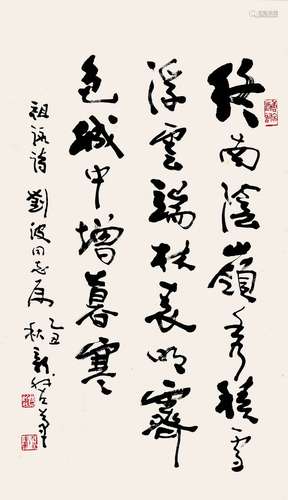 終南陰嶺秀積雪
浮雲端林表明霽
色城中增暮寒
祖詠詩 劉波同志屬
乙丑秋新